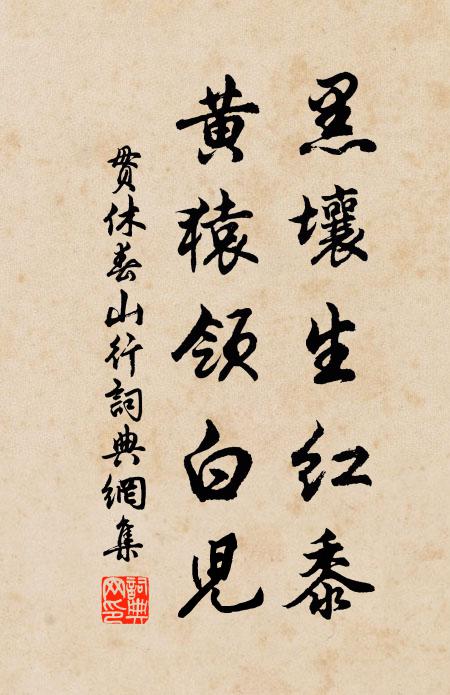 黑壤生红黍
黄猿领白児
贯休春山行詞典網集
詞典網印